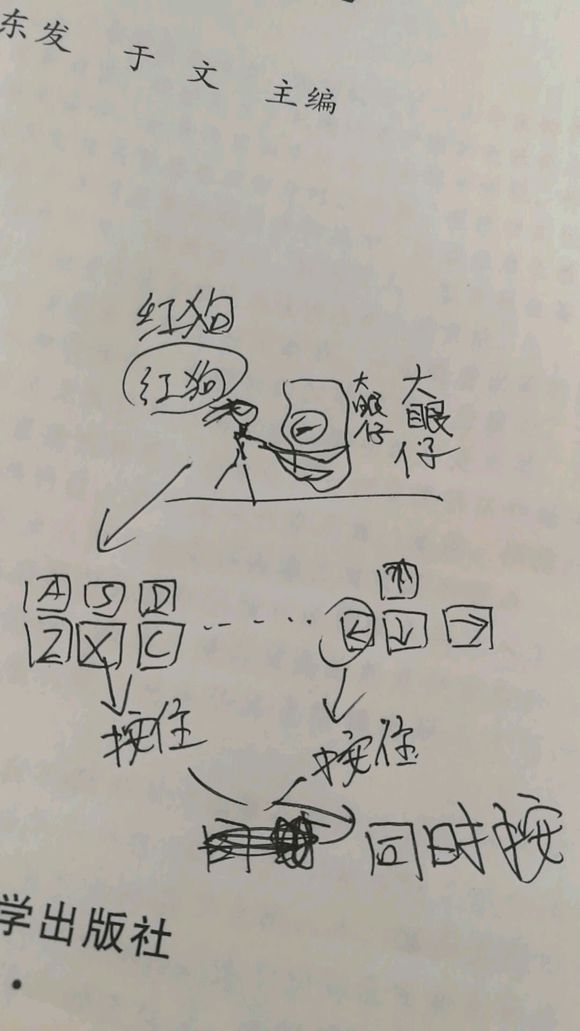 东发 于 文 主编
红狗
红狗
大眼仔
大眼仔
A S D ↑
Z X C ...... ← ↓ →
按住 按住
同时按
学出版社